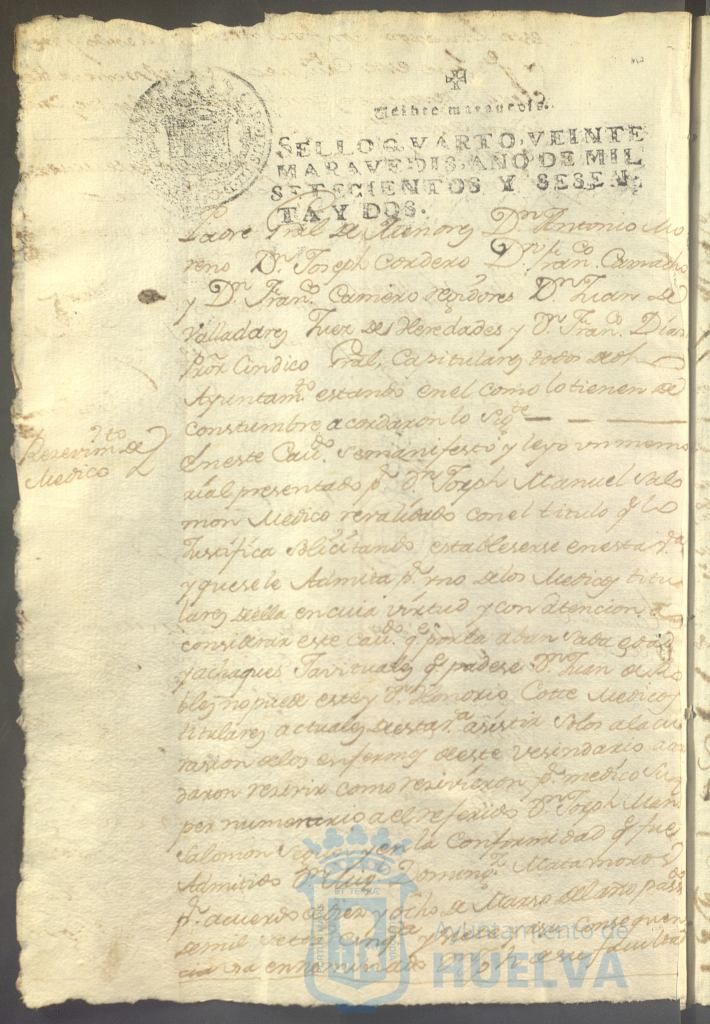 Veinte maravedis.
SELLO QVARTO, VEINTE
MARAVEDIS, AÑO DE MIL
SETECIENTOS Y SESEN-
TA Y DOS.
Padre Gral de Menores Dn Antonio Mo
reno Dn Joseph Cordero Dn Franco Camacho
y Dn Franco Camero regidores Dn Juan de
Valladares Juez de Heredades y Dn Franco Dias
Pror Cindico Gral, Capitulares todos de dho
Ayuntamto estando en el como lo tienen de
constumbre acordaron lo Sigte
Resevimto de
Medico
En este Cavdo se manifestó y leyó un memo
rial presentado pr Dn Joseph Manuel Salo
mon Medico revalidado con el titulo qe lo
Justifica solicitando estableserse en esta va
y que se le Admita pr uno de los Medicos titu
lares de ella en cuia virtud y con atencion a
considerar este Cavdo qe por la abansada edad
y achaques qe padese Dn Juan de Ro
bles no puede este y Dn Honorio Cotte Medicos
titulares actuales de esta va asistir solos a la cu
rasion de los enfermos de este vesindario acor
daron resivir como resivieron pr medico Su
pernumerario a el referido Dn Joseph Man
Salomon segun y en la Conformidad qe fue
Admitido Dn Luis Domingo Matamoros
pr acuerdo de dies y ocho de Marso del año pasdo
de mil setos cinqta y
Ayuntamiento de
HUELVA